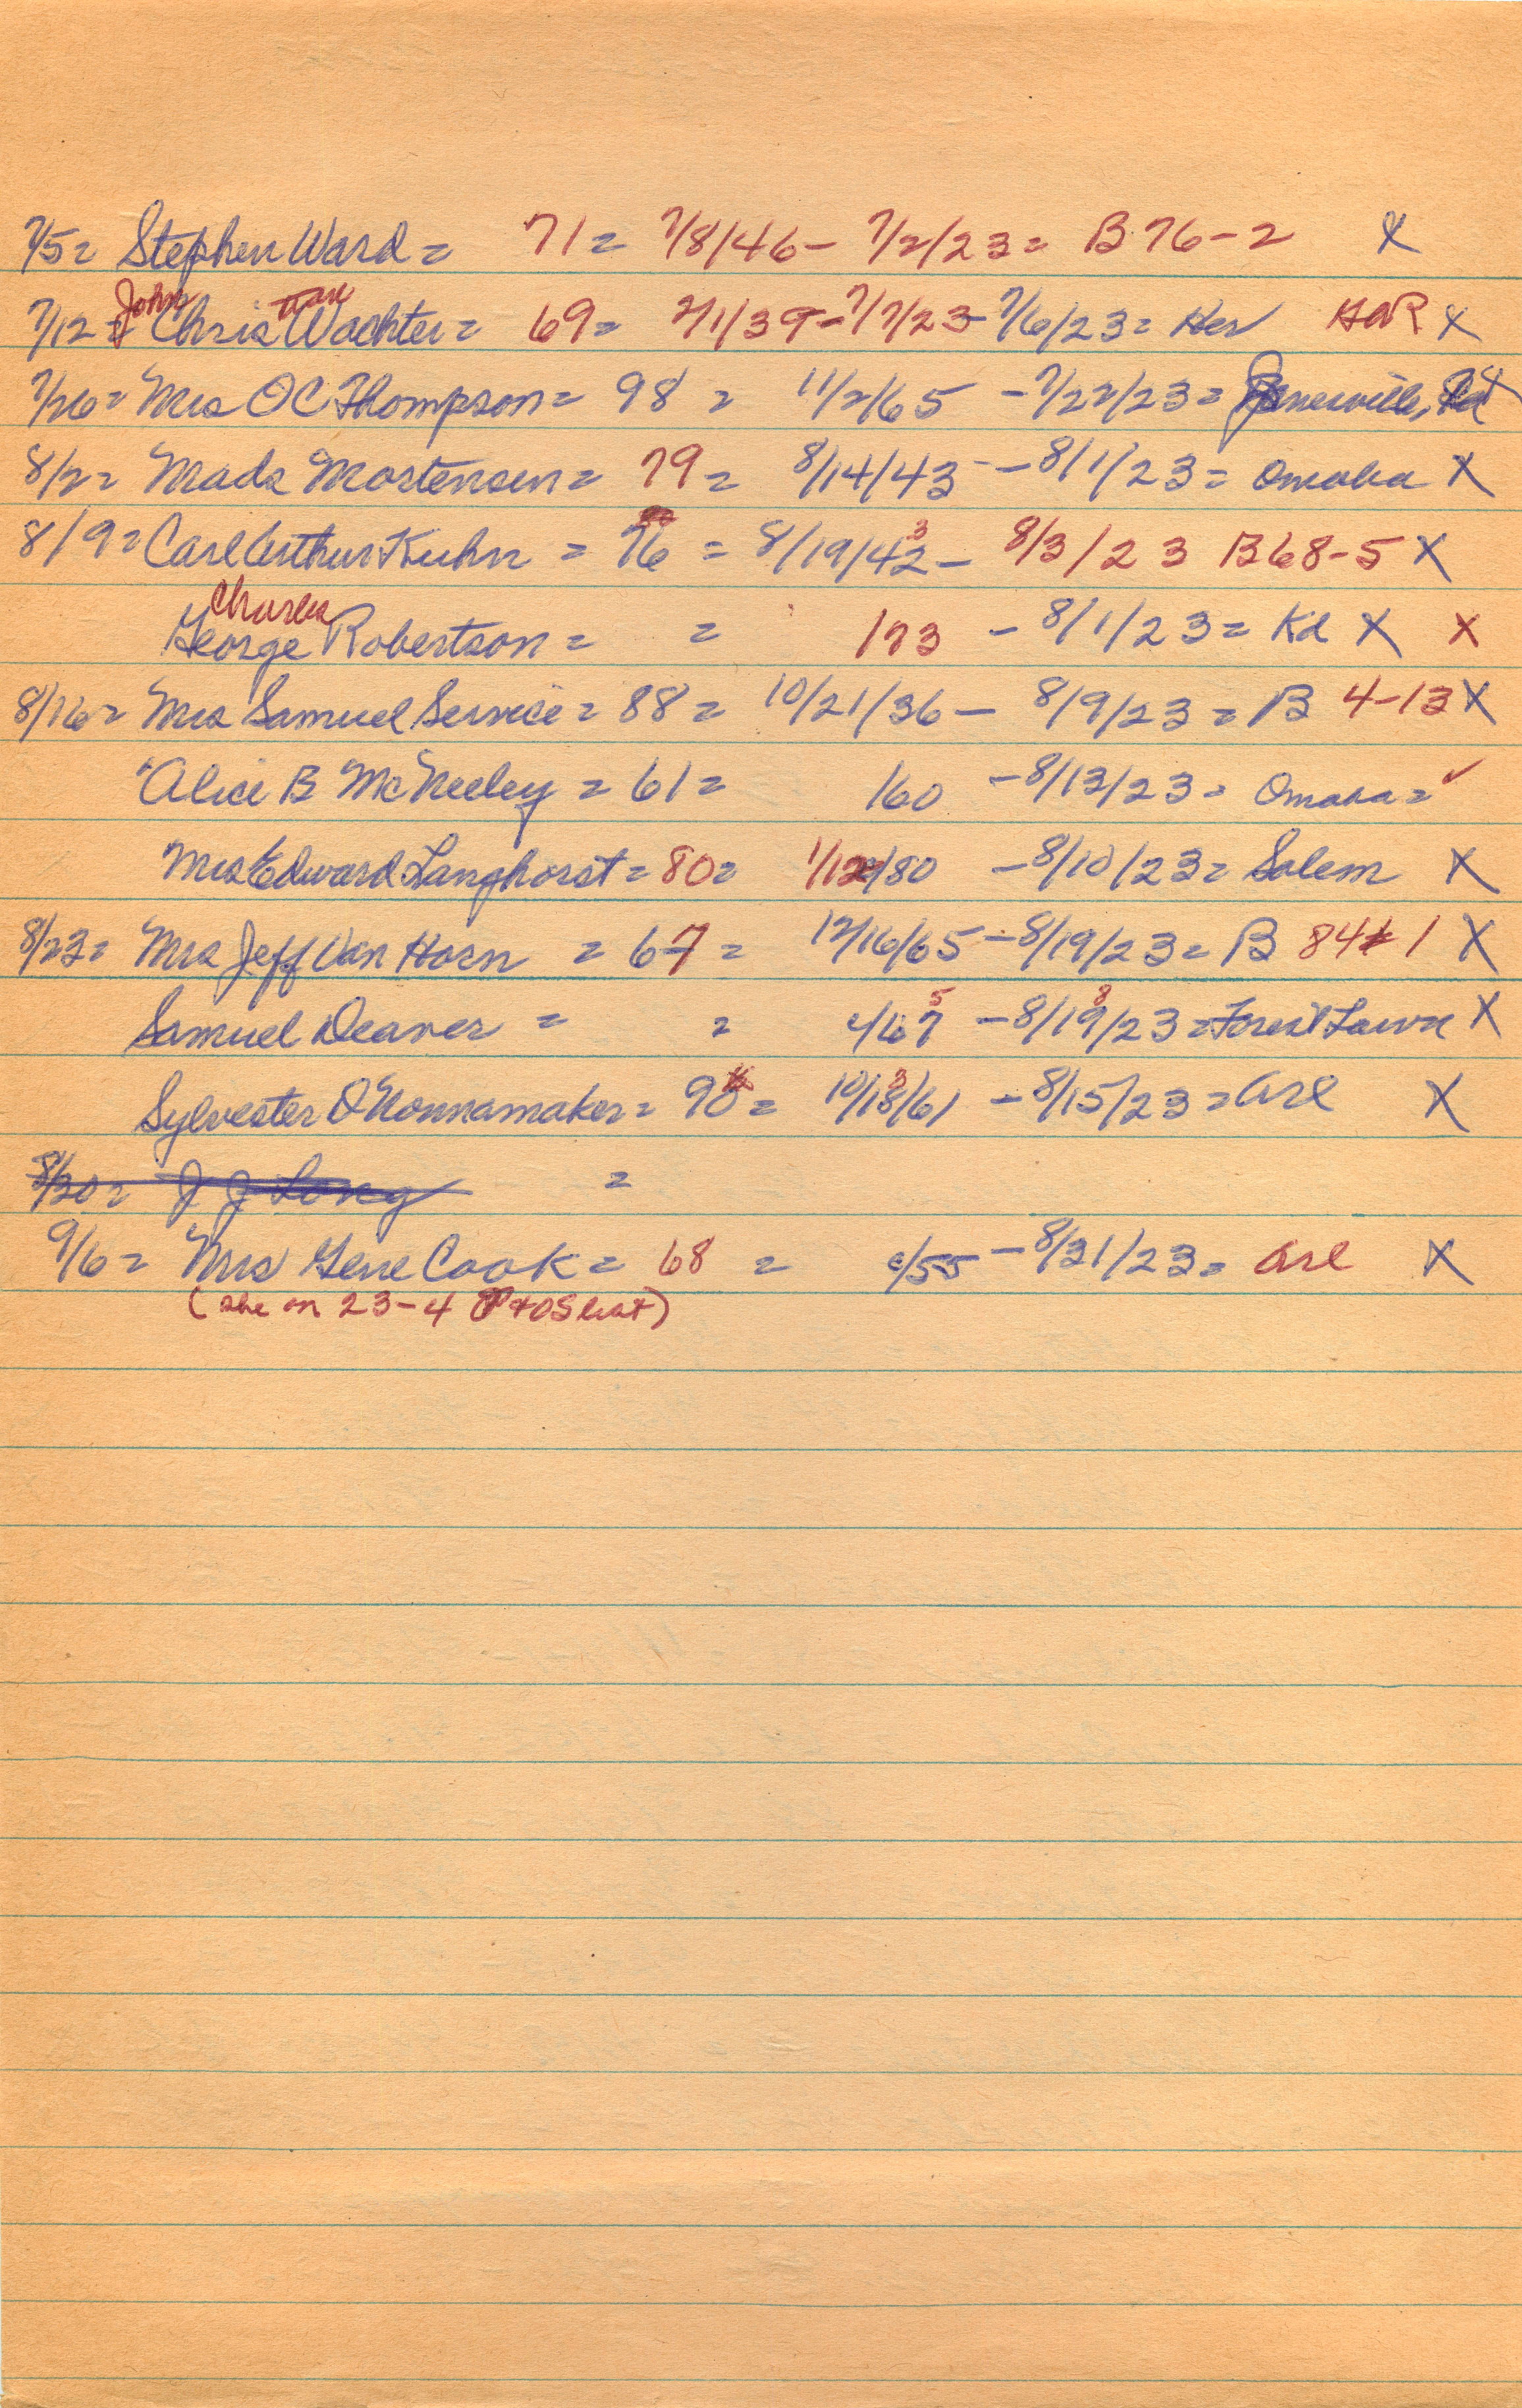 7/5 = Stephen Ward = 71 = 7/8/46 - 7/2/23 = B 76-2 X
John tian
7/12 = Chris Wachter = 69 = 2/1/39 - 7/7/23 - 7/6/23 = Her HAR X
7/26 = Mrs OC Thompson = 98 = 11/2/65 - 7/22/23 = Janesville, X
8/2 = Mads Mortensen = 79 = 8/14/43 - 8/1/23 = Omaha X
8/9 = Carl Arthur Kuhn = 76 = 8/19/42 3 - 8/3/23 B68-5 X
Charles
George Robertson = = 173 - 8/1/23 = Kd X X
8/16 = Mrs Samuel Service = 88 = 10/21/36 - 8/9/23 = B 4-13 X
Alice B McNeeley = 61 = 160 - 8/13/23 = Omaha = ✓
Mrs Edward Langhorst = 80 = 1/12/80 - 8/10/23 = Salem X
8/23 = Mrs Jeff Van Horn = 67 = 12/16/65 - 8/19/23 = B 84 1 X
Samuel Deaver = = c/67 5 - 8/19 8/23 = Forest Lawn X
Sylvester O Wonnamaker = 90 = 10/18 3/61 - 8/15/23 = Arl X
8/30 = J J Long =
9/6 = Mrs Gene Cook = 68 = c/55 - 8/31/23 = Arl X
(she on 23-4 P+OS list)